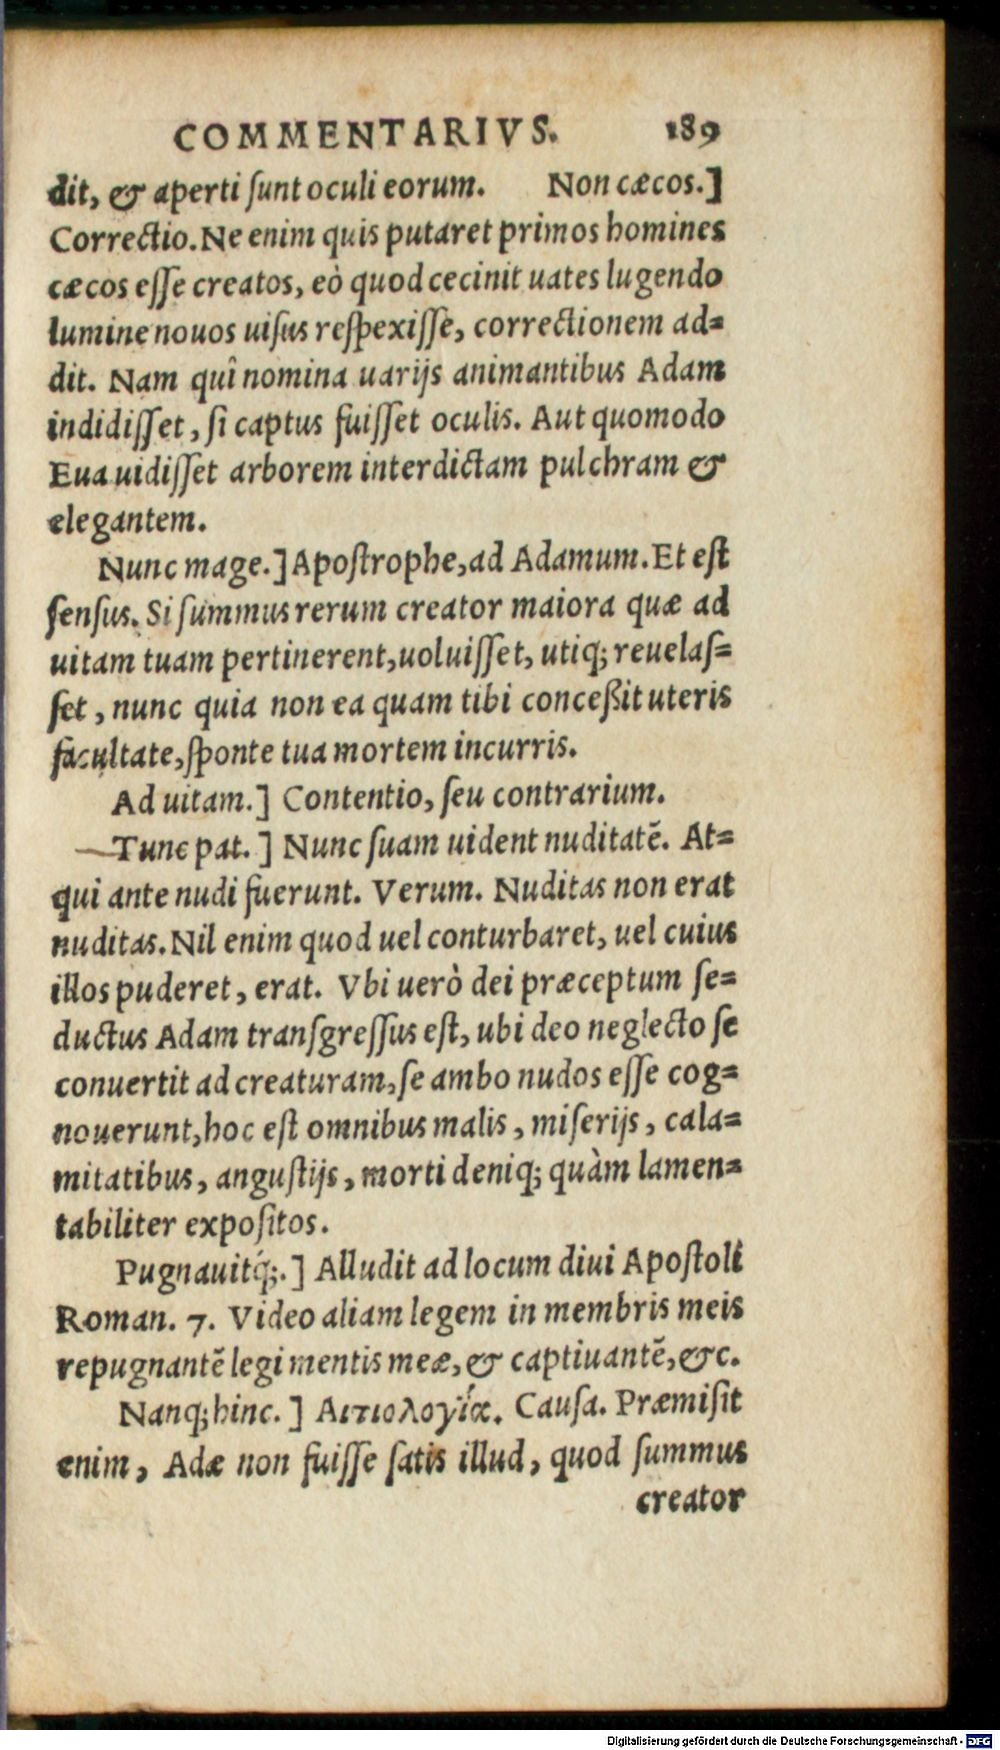 COMMENTARIVS. 189
dit, & aperti ſunt oculi eorum. Non cæcos.]
Correctio. Ne enim quis putaret primos homines
cæcos eſſe creatos, eò quod cecinit uates lugendo
lumine nouos uiſus reſpexiſſe, correctionem ad=
dit. Nam quî nomina uarijs animantibus Adam
indidiſſet, ſi captus fuiſſet oculis. Aut quomodo
Eua uidiſſet arborem interdictam pulchram &
elegantem.
Nunc mage.] Apoſtrophe, ad Adamum. Et eſt
ſenſus. Si ſummus rerum creator maiora quæ ad
uitam tuam pertinerent, uoluiſſet, utiq; reuelaſ=
ſet, nunc quia non ea quam tibi conceßit uteris
facultate, ſponte tua mortem incurris.
Ad uitam.] Contentio, ſeu contrarium.
Tunc pat.] Nunc ſuam uident nuditatẽ. At=
qui ante nudi fuerunt. Verum. Nuditas non erat
nuditas. Nil enim quod uel conturbaret, uel cuius
illos puderet, erat. Vbi uerò dei præceptum ſe=
ductus Adam tranſgreſſus eſt, ubi deo neglecto ſe
conuertit ad creaturam, ſe ambo nudos eſſe cog=
nouerunt, hoc eſt omnibus malis, miſerijs, cala=
mitatibus, anguſtijs, morti deniq; quàm lamen=
tabiliter expoſitos.
Pugnauitq́;.] Alludit ad locum diui Apoſtoli
Roman. 7. Video aliam legem in membris meis
repugnantẽ legi mentis meæ, & captiuantẽ, &c.
Nanq; hinc.] Αιτιολογία. Cauſa. Præmiſit
enim, Adæ non fuiſſe ſatis illud, quod ſummus
creator
Digitalisierung gefördert durch die Deutsche Forschungsgemeinschaft - DFG